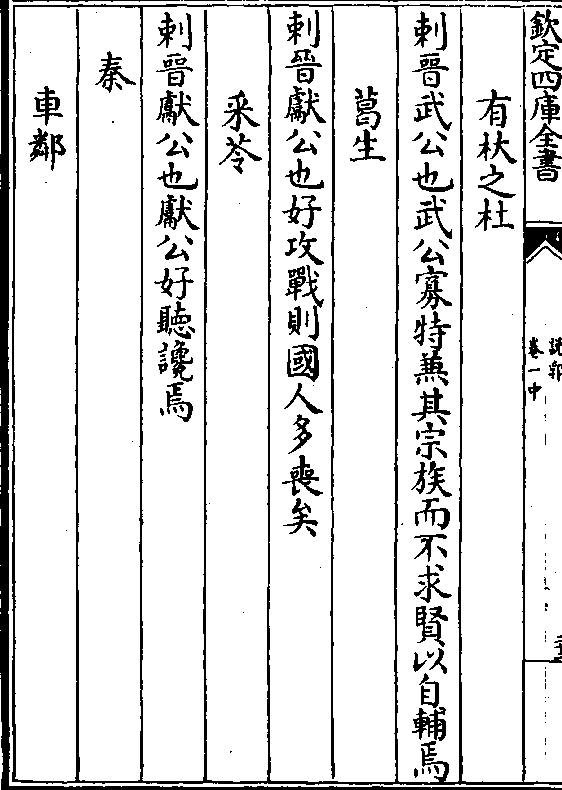 欽定四庫全書
說郛
卷一中
有杕之杜
刺晉武公也武公寡特兼其宗族而不求賢以自輔焉
葛生
刺晉獻公也好攻戰則國人多喪矣
采苓
刺晉獻公也獻公好聽讒焉
秦
車鄰